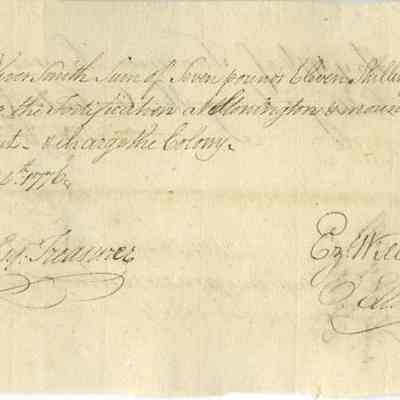 Smith Sum of Seven pounds Eleven Shill
the Fortification at Stonington & moun
& charge the Colony.
1776
Esqr. Treasurer
Ez. Will